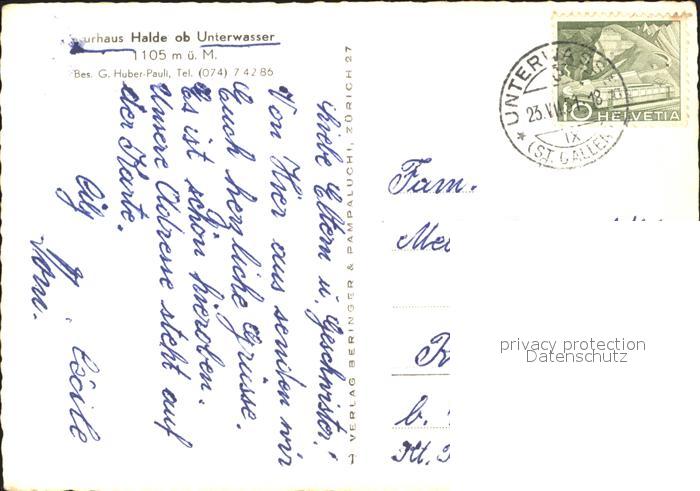 Kurhaus Halde ob Unterwasser
1105 m ü. M.
Bes. G. Huber-Pauli, Tel. (074) 7 42 86
Liebe Eltern u. Geschwister!
Von Hier aus senden wir
Euch herzliche Grüsse.
Es ist schön hieroben.
Unsere Adresse steht auf
der Karte.
Cécile
VERLAG BERINGER & PAMPALUCHI, ZÜRICH 27
UNTERWASSER
(ST. GALLEN)
IX
10 HELVETIA
Fam.
privacy protection
Datenschutz
b.
Kt.